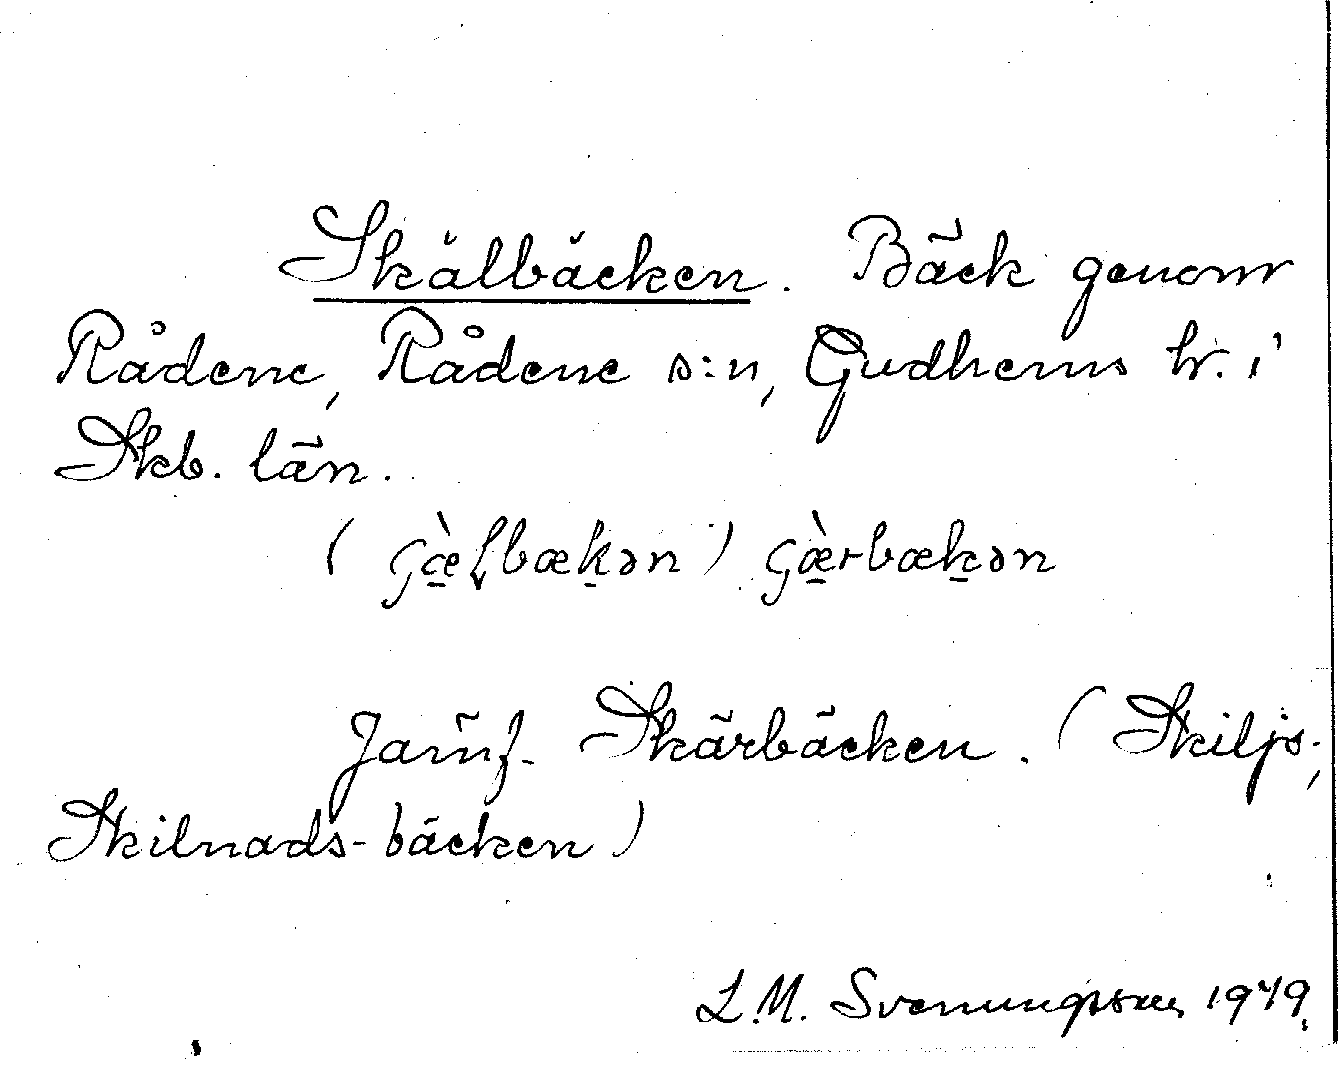 Skälbäcken. Bäck genom
Rådene, Rådene s:n, Gudhems hr. i
Skb. län.
(ʂæ̀ɭbæk̠ən) ʂæ̀rbæk̠ən
Jämf. Skärbäcken. (Skiljs-,
Skilnads-bäcken)
L.M. Svenungsson 1949.